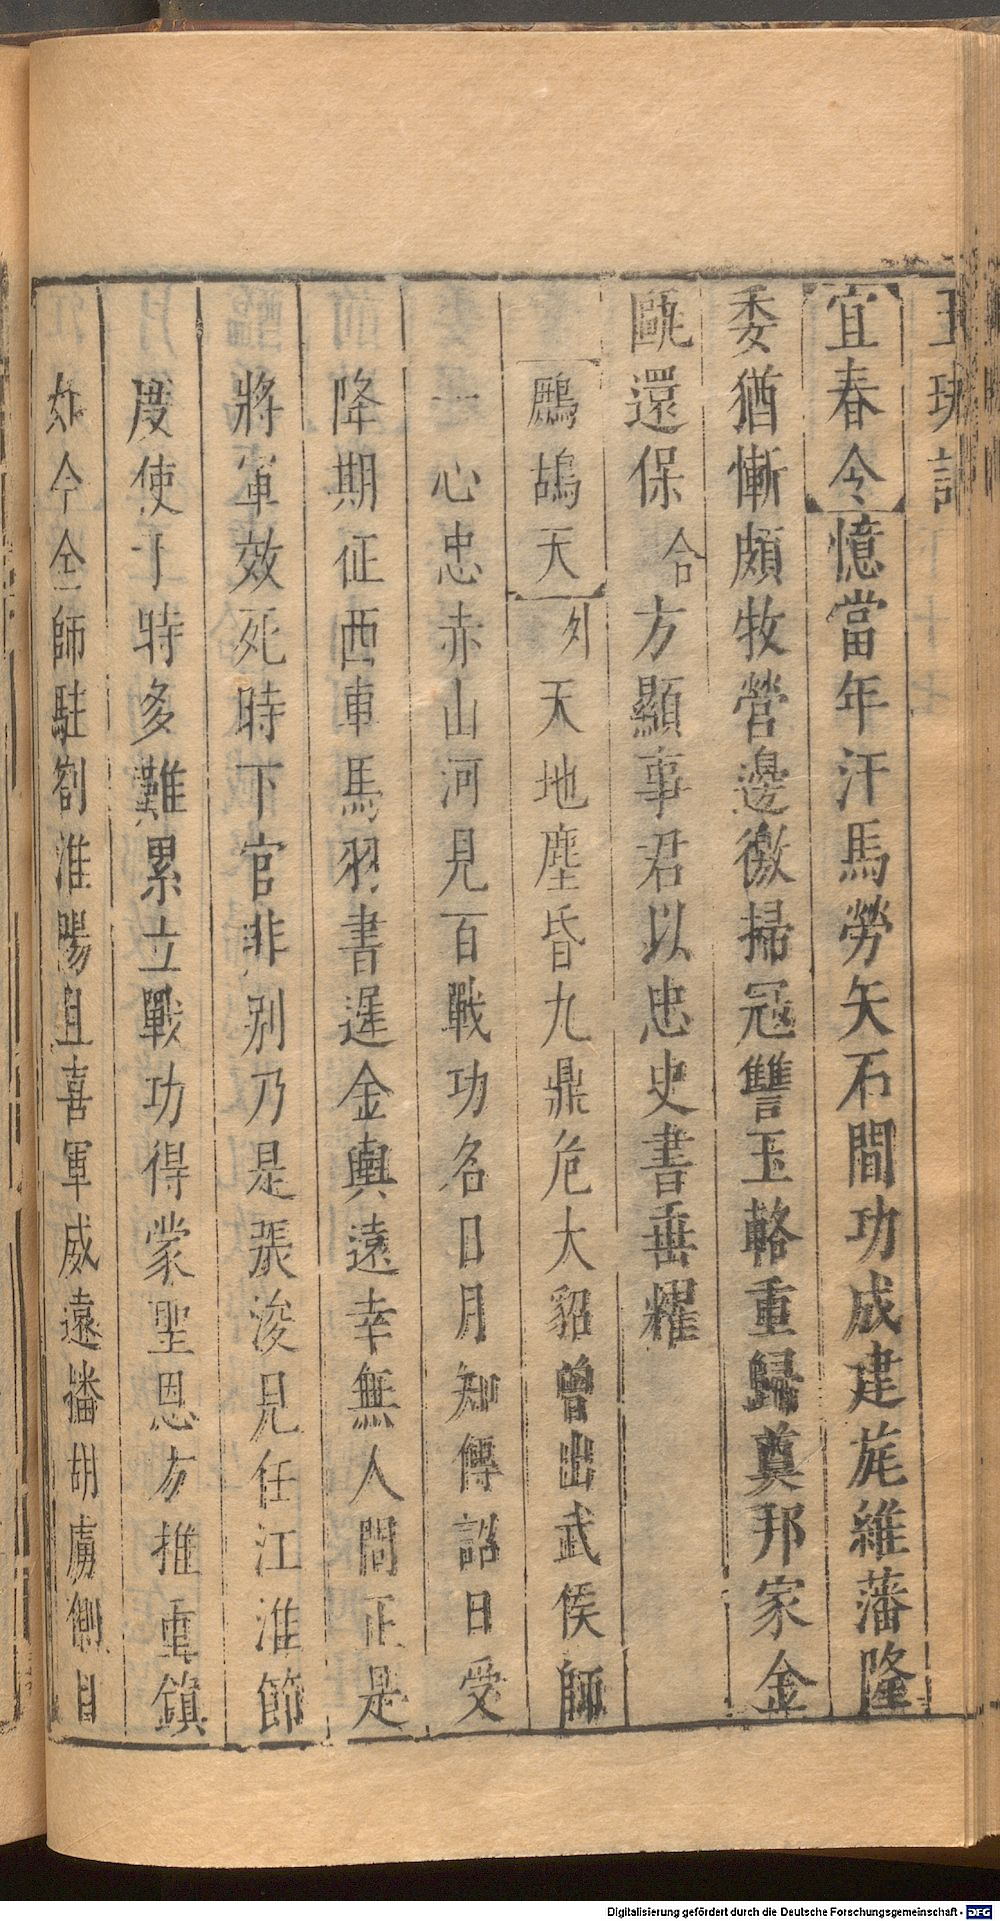 玉玦記
宜春令憶當年汗馬勞矢石間功成建旄維藩隆
委猶慚頗牧營邊徼掃冦讐玉輅重歸奠邦家金
甌還保合方顯事君以忠史書垂耀
鷓鴣天外天地塵昏九鼎危大貂曾出武侯師
一心忠赤山河見百戰功名日月知傳詔日受
降期征西車馬羽書遲金輿遠幸無人問正是
將軍效死時下官非别乃是張浚見任江淮節
度使丁時多難累立戰功得蒙聖恩方推重鎮
如今仝師駐劄淮陽且喜軍威遠播胡虜側目
Digitalisierung gefördert durch die Deutsche Forschungsgemeinschaft - DFG